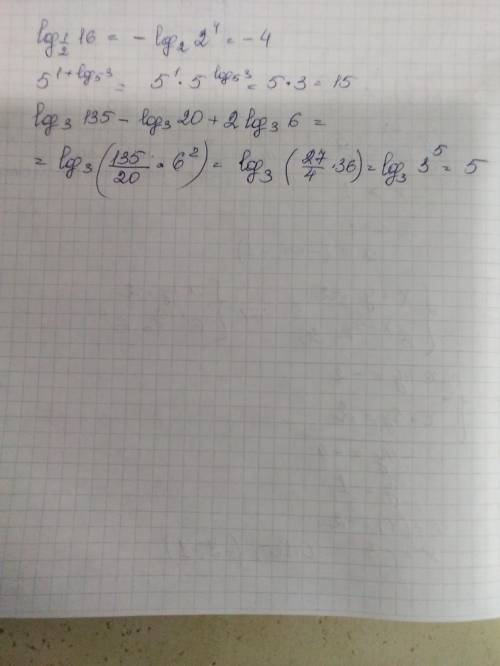 log_{1/2} 16 = - log_2 2^4 = -4
5^{1+log_5 3} = 5^1 · 5^{log_5 3} = 5 · 3 = 15
log_3 135 - log_3 20 + 2 log_3 6 =
= log_3 (135/20 · 6^2) = log_3 (27/4 · 36) = log_3 3^5 = 5